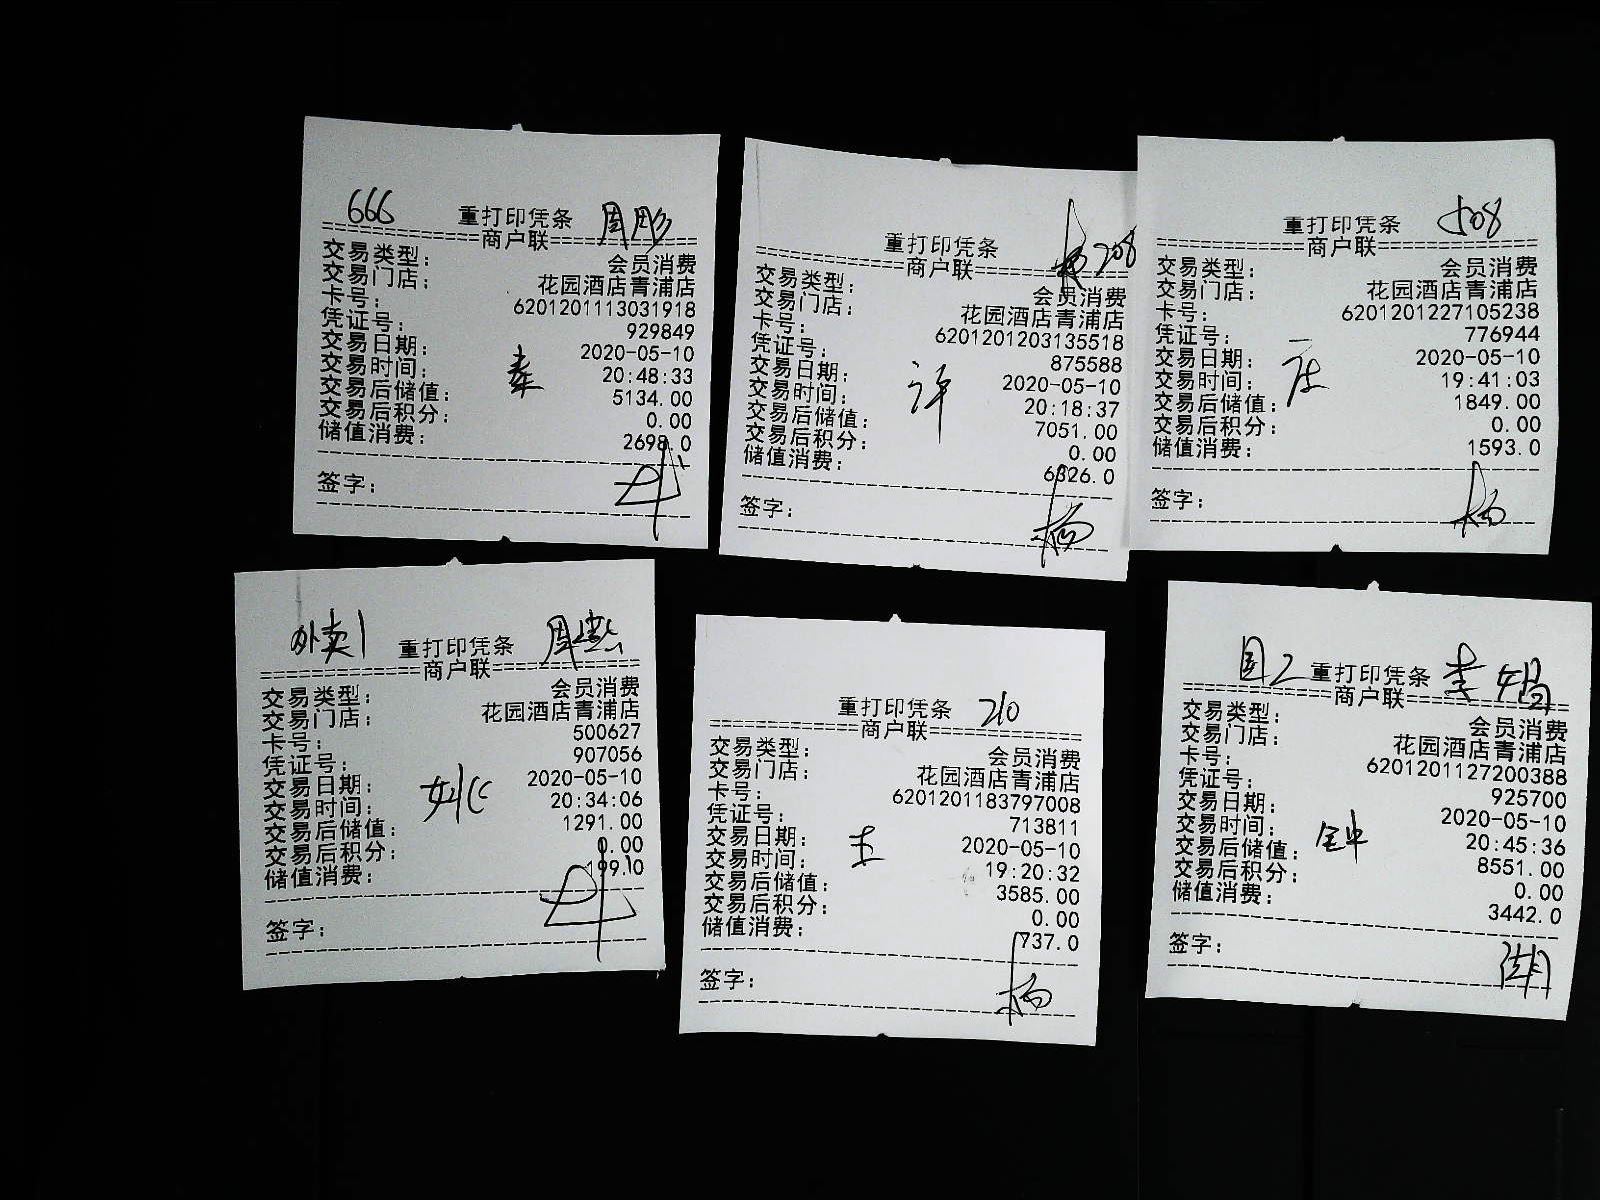 666 重打印凭条 周彪
==============商户联==============
交易类型： 会员消费
交易门店： 花园酒店青浦店
卡号： 6201201113031918
凭证号： 929849
交易日期： 2020-05-10
交易时间： 20:48:33
交易后储值： 5134.00
交易后积分： 0.00
储值消费： 2698.0
签字：
重打印凭条 杨208
==============商户联==============
交易类型： 会员消费
交易门店： 花园酒店青浦店
卡号： 6201201203135518
凭证号： 875588
交易日期： 2020-05-10
交易时间： 许 20:18:37
交易后储值： 7051.00
交易后积分： 0.00
储值消费： 6326.0
签字： 杨
重打印凭条 508
==============商户联==============
交易类型： 会员消费
交易门店： 花园酒店青浦店
卡号： 6201201227105238
凭证号： 776944
交易日期： 2020-05-10
交易时间： 19:41:03
交易后储值： 1849.00
交易后积分： 0.00
储值消费： 1593.0
签字： 杨
外卖1 重打印凭条
==============商户联==============
交易类型： 会员消费
交易门店： 花园酒店青浦店
卡号： 500627
凭证号： 907056
交易日期： 2020-05-10
交易时间： 20:34:06
交易后储值： 1291.00
交易后积分： 0.00
储值消费： 199.0
签字：
重打印凭条 210
==============商户联==============
交易类型： 会员消费
交易门店： 花园酒店青浦店
卡号： 6201201183797008
凭证号： 713811
交易日期： 2020-05-10
交易时间： 王 19:20:32
交易后储值： 3585.00
交易后积分： 0.00
储值消费： 737.0
签字： 杨
重打印凭条 李娟
==============商户联==============
交易类型： 会员消费
交易门店： 花园酒店青浦店
卡号： 6201201127200388
凭证号： 925700
交易日期： 2020-05-10
交易时间： 钟 20:45:36
交易后储值： 8551.00
交易后积分： 0.00
储值消费： 3442.0
签字：